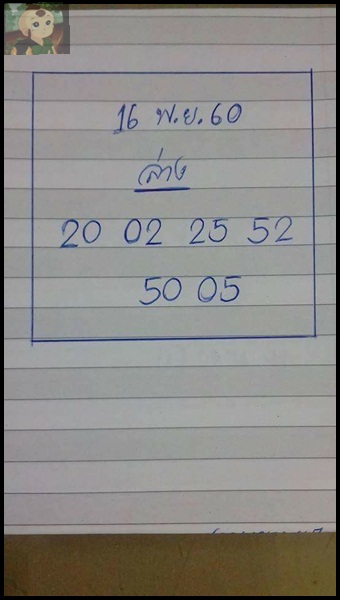 16 พ.ย.60
ล่าง
20 02 25 52
50 05